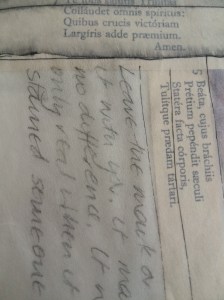 Colláudet omnis spíritus:
Quibus crucis victóriam
Largíris adde præmium.
Amen.
5 Beáta, cujus bráchiis
Prétium pepéndit sæculi
Statéra facta córporis,
Tulítque prædam tártari.
Leave the mark o
it with. It ma
no difference. It
only real when it
stained someone